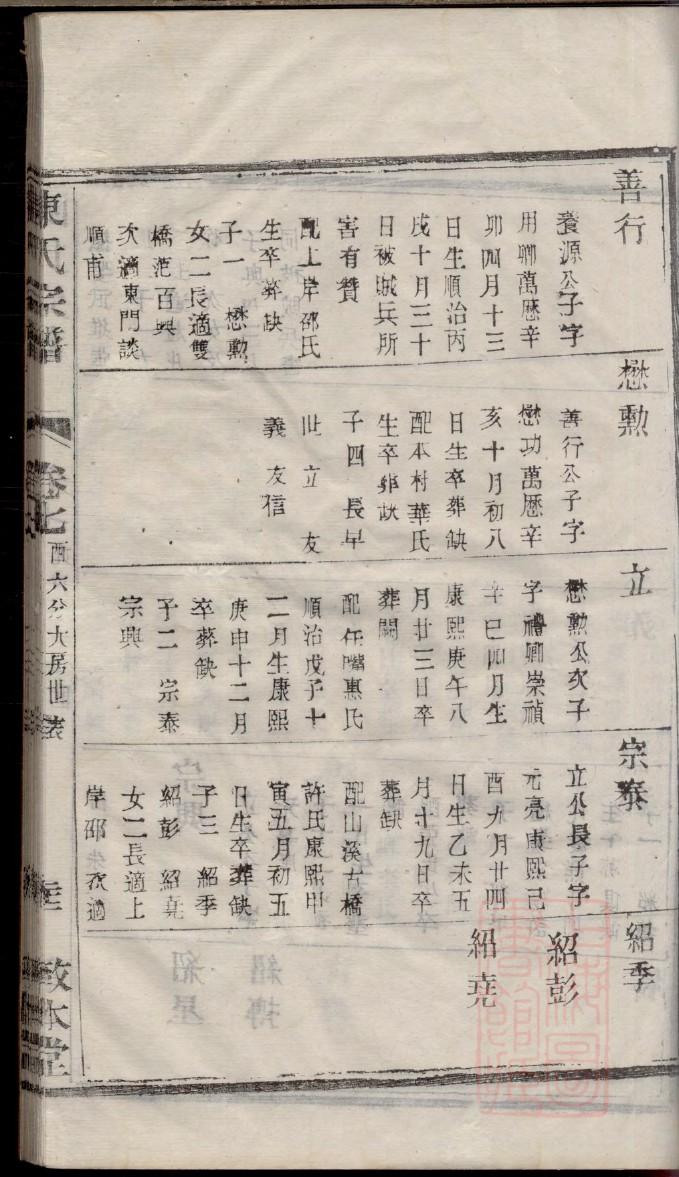 善行
養源公子字
用卿萬歷辛
卯四月十三
日生順治丙
戌十月三十
日被賊兵所
害有贊
配上岸邵氏
生卒葬缺
子一 懋勲
女二長適雙
橋范百興
次適東門談
順甫
懋勲
善行公子字
懋功萬歷辛
亥十月初八
日生卒葬缺
配本村華氏
生卒葬缺
子四 長早
世 立 友
義 友信
立
懋勲公次子
字禮卿崇禎
辛巳四月生
康熙庚午八
月廿三日卒
葬闕
配任嘴惠氏
順治戊子十
二月生康熙
庚申十二月
卒葬缺
子二 宗泰
宗興
宗泰
立公長子字
元亮康熙己
酉九月廿四
日生乙未五
月十九日卒
葬缺
配山溪古橋
許氏康熙甲
寅五月初五
日生卒葬缺
子三 紹季
紹彭 紹堯
女二長適上
岸邵 次適
紹季
紹彭
紹堯
陳氏宗譜
卷七
酉六分大房世表
敦本堂